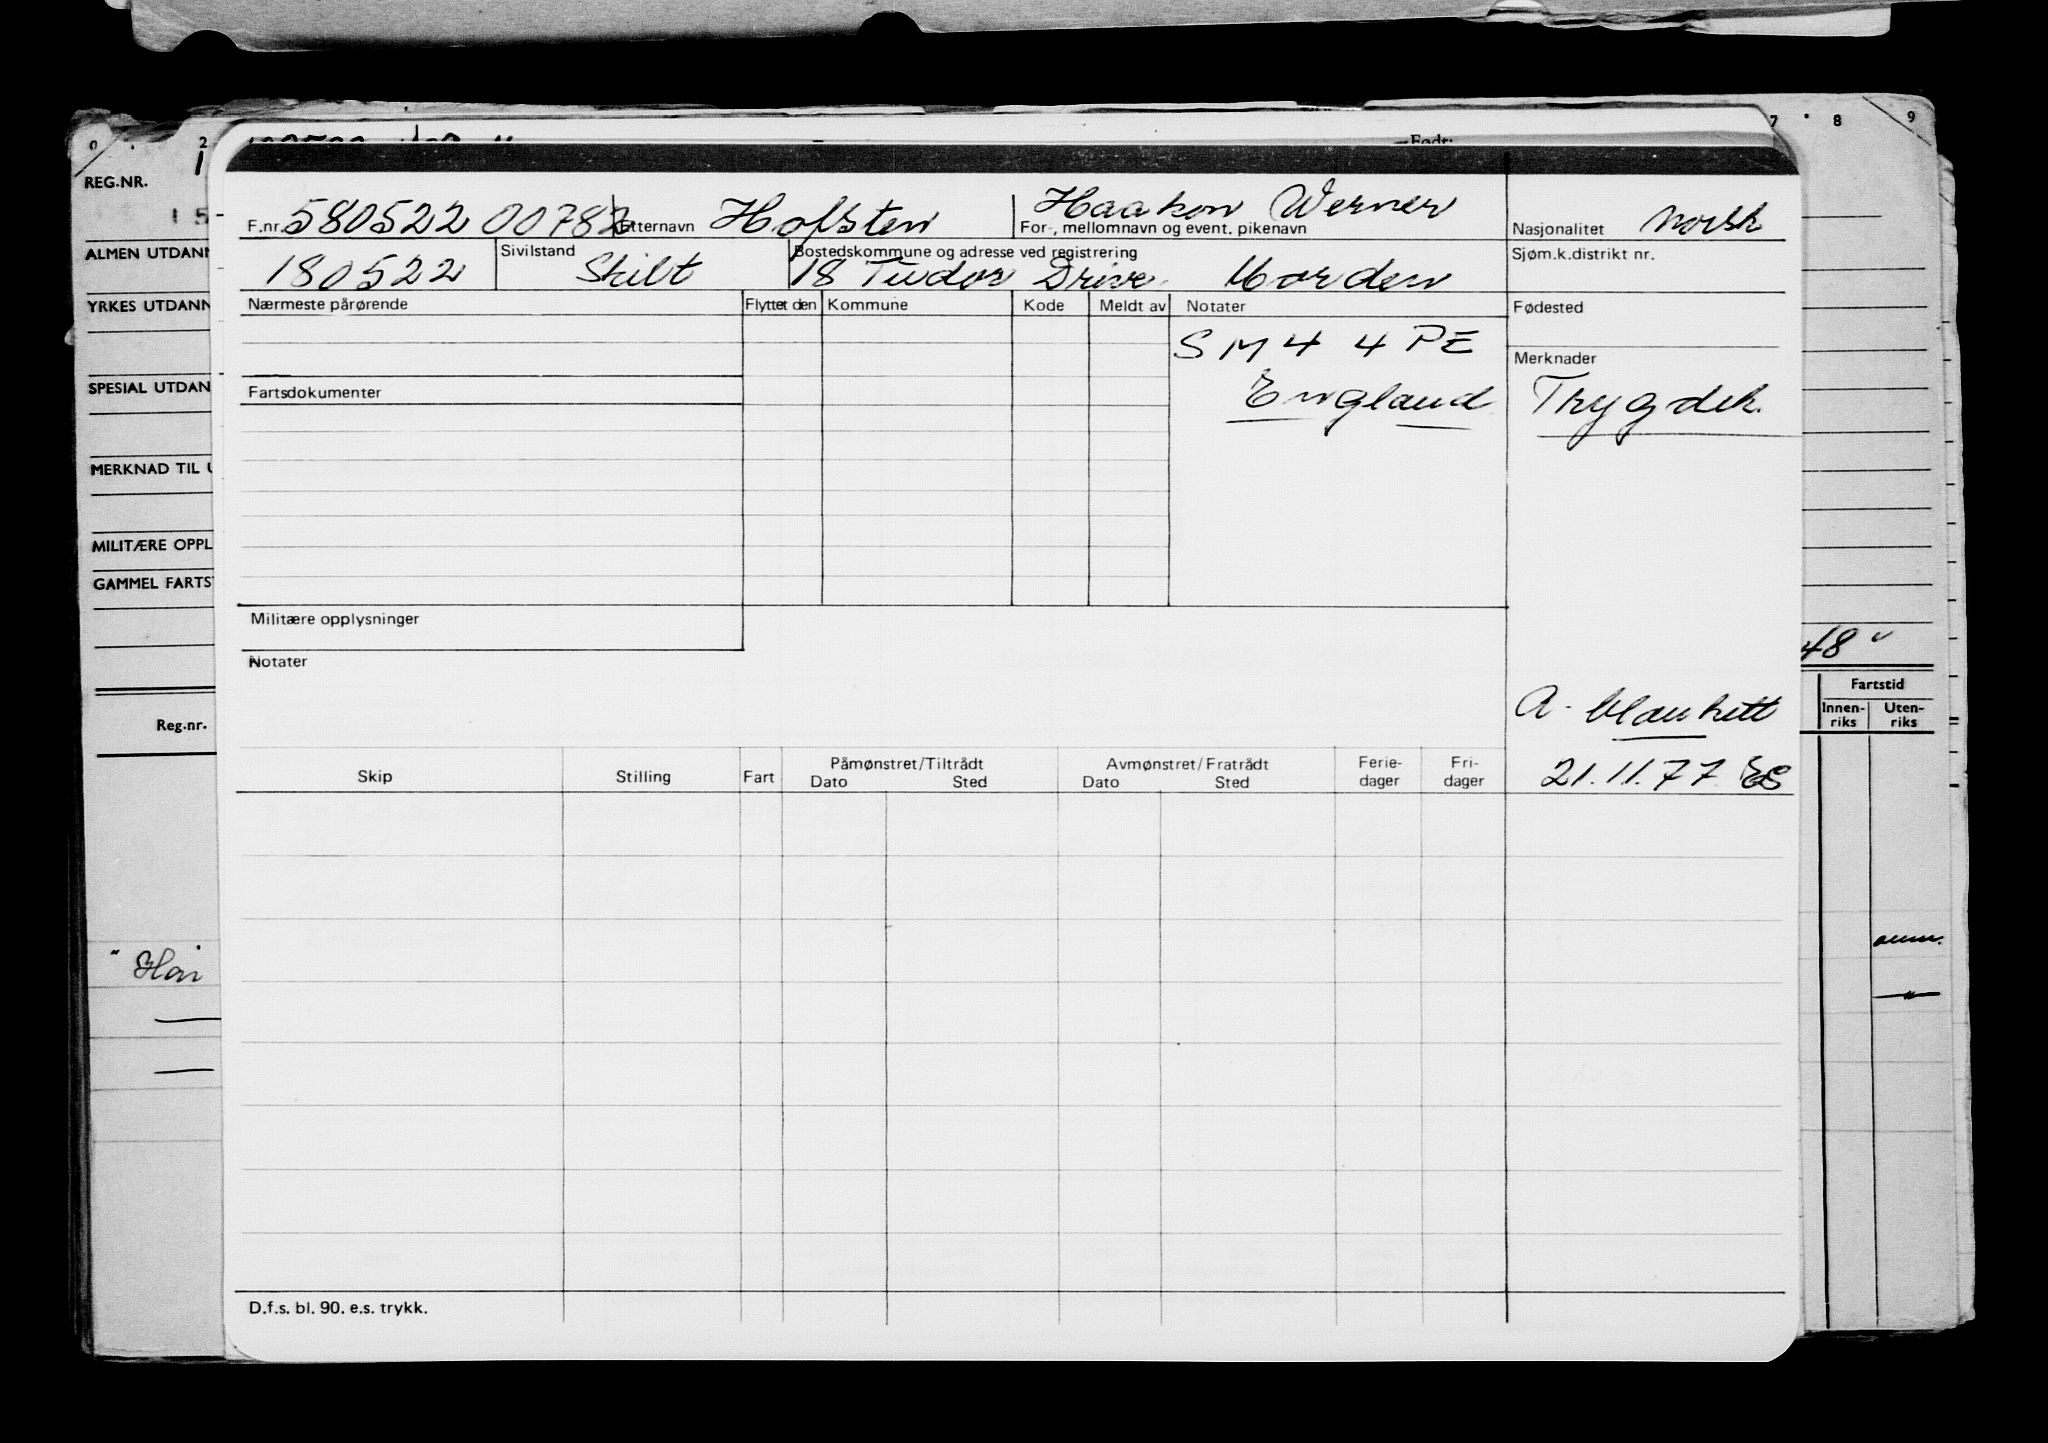 0 2 7 8 9
Født:
REG.NR.
1 5
ALMEN UTDANN
YRKES UTDANN
SPESIAL UTDAN
MERKNAD TIL U
MILITÆRE OPPL
GAMMEL FARTST
Reg.nr.
F.nr. 580522 00782 Etternavn Hofsten Haakon Werner
For-, mellomnavn og event. pikenavn
Nasjonalitet Norsk
180522 Sivilstand Skilt
Bostedskommune og adresse ved registrering
18 Tudor Drive Morden
Sjøm.k.distrikt nr.
Nærmeste pårørende Flyttet den Kommune Kode Meldt av Notater
Fødested
SM4 4PE
England
Merknader
Trygdek.
Fartsdokumenter
Militære opplysninger
Notater
A-blankett
21.11.77 ES
Skip Stilling Fart Påmønstret/Tiltrådt Dato Sted Avmønstret/Fratrådt Dato Sted Ferie-dager Fri-dager
48"
Fartstid
Innen-riks Uten-riks
D.f.s. bl. 90. e.s. trykk.